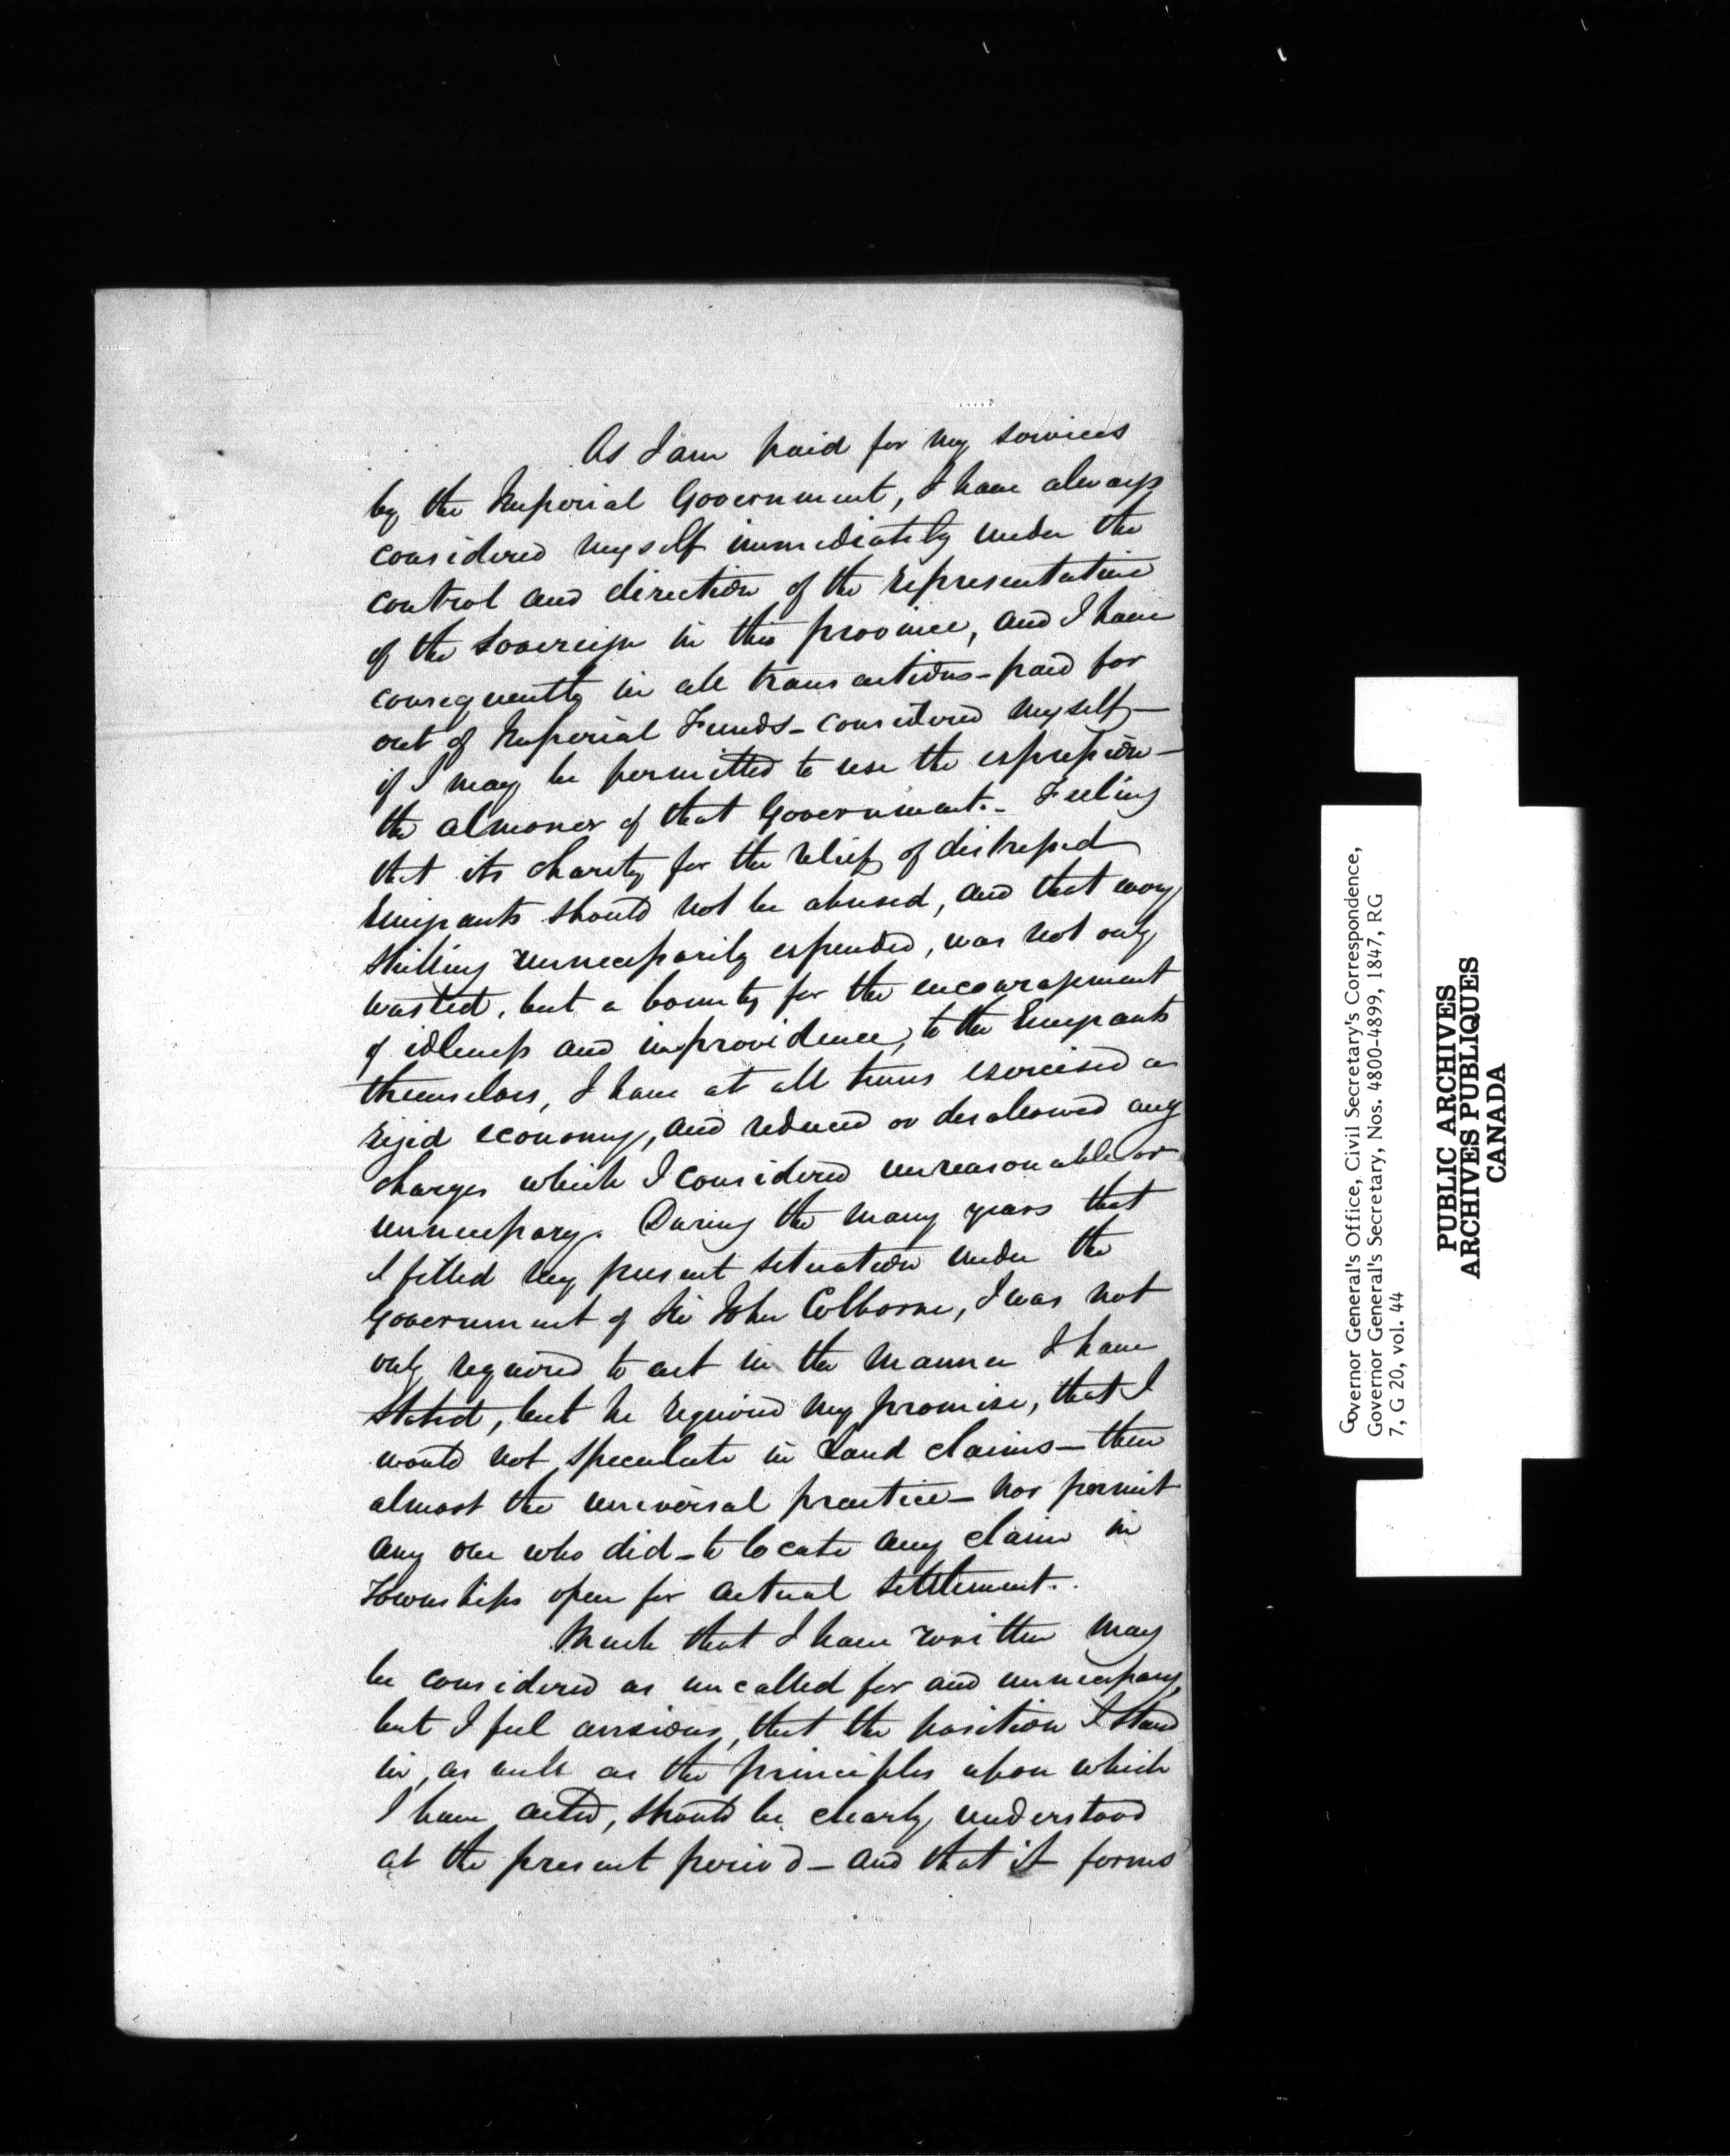 As I am paid for my services
by the Imperial Government, I have always
considered myself immediately under the
control and direction of the representative
of the Sovereign in this province, and I have
consequently in all transactions – paid for
out of Imperial Funds – considered myself –
if I may be permitted to use the expression –
the almoner of that Government. – Feeling
that its charity for the relief of distressed
Emigrants should not be abused, and that every
shilling unnecessarily expended, was not only
wasted, but a bounty for the encouragement
of idleness and improvidence, to the Emigrants
themselves, I have at all times exercised a
rigid economy, and reduced or disallowed any
charges which I considered unreasonable or
unnecessary. During the many years that
I filled my present situation under the
Government of Sir John Colborne, I was not
only required to act in the manner I have
stated, but he required my promise, that I
would not speculate in Land claims – then
almost the universal practice – nor permit
any one who did – to locate any claim in
Townships open for actual settlement.
Much that I have written may
be considered as uncalled for and unnecessary,
but I feel anxious, that the position I stand
in, as well as the principles upon which
I have acted, should be clearly understood
at the present period – and that it forms
Governor General's Office, Civil Secretary's Correspondence,
Governor General's Secretary, Nos. 4800-4899, 1847, RG
7, G 20, vol. 44
PUBLIC ARCHIVES
ARCHIVES PUBLIQUES
CANADA